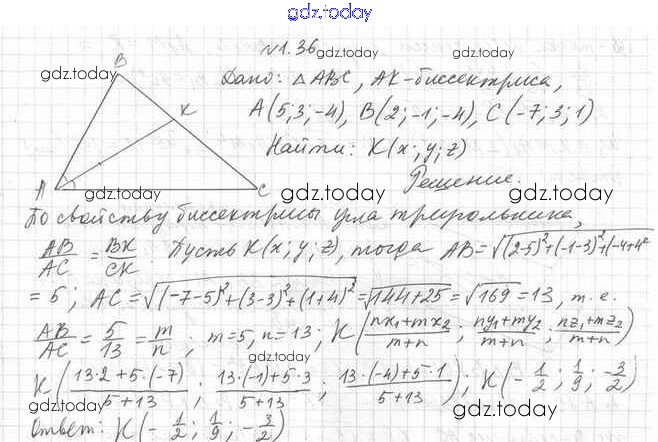 gdz.today
№1.36 gdz.today
Дано: △ABC, AK-биссектриса,
A(5;3;-4), B(2;-1;-4), C(-7;3;1)
Найти: K(x;y;z)
Решение.
gdz.today
B
K
A
C
gdz.today
gdz.today
По свойству биссектрисы угла треугольника,
AB/AC = BK/CK. Пусть K(x;y;z), тогда AB=√((2-5)²+(-1-3)²+(-4+4²
= 5; AC=√((-7-5)²+(3-3)²+(1+4)²)=√(144+25)=√169=13, т.е.
AB/AC = 5/13 = m/n; m=5, n=13; K((nx₁+mx₂)/(m+n); (ny₁+my₂)/(m+n); (nz₁+mz₂)/(m+n))
gdz.today
K((13·2+5·(-7))/(5+13); (13·(-1)+5·3)/(5+13); (13·(-4)+5·1)/(5+13)); K(-1/2; 1/9; -3/2)
gdz.today
gdz.today
Ответ: K(-1/2; 1/9; -3/2)
gdz.today